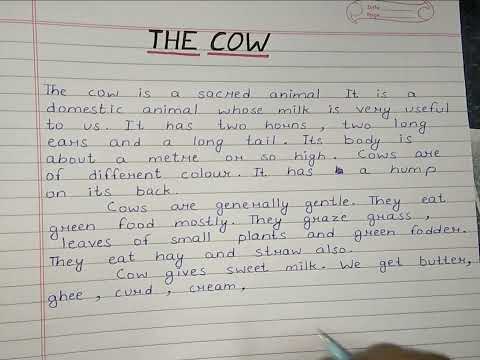 Date
Page
THE COW
The cow is a sacred animal It is a
domestic animal whose milk is very useful
to us. It has two horns, two long
ears and a long tail. Its body is
about a metre or so high. Cows are
of different colour. It has a hump
on its back.
Cows are generally gentle. They eat
green food mostly. They graze grass,
leaves of small plants and green fodder.
They eat hay and straw also.
Cow gives sweet milk. We get butter,
ghee, curd, cream,